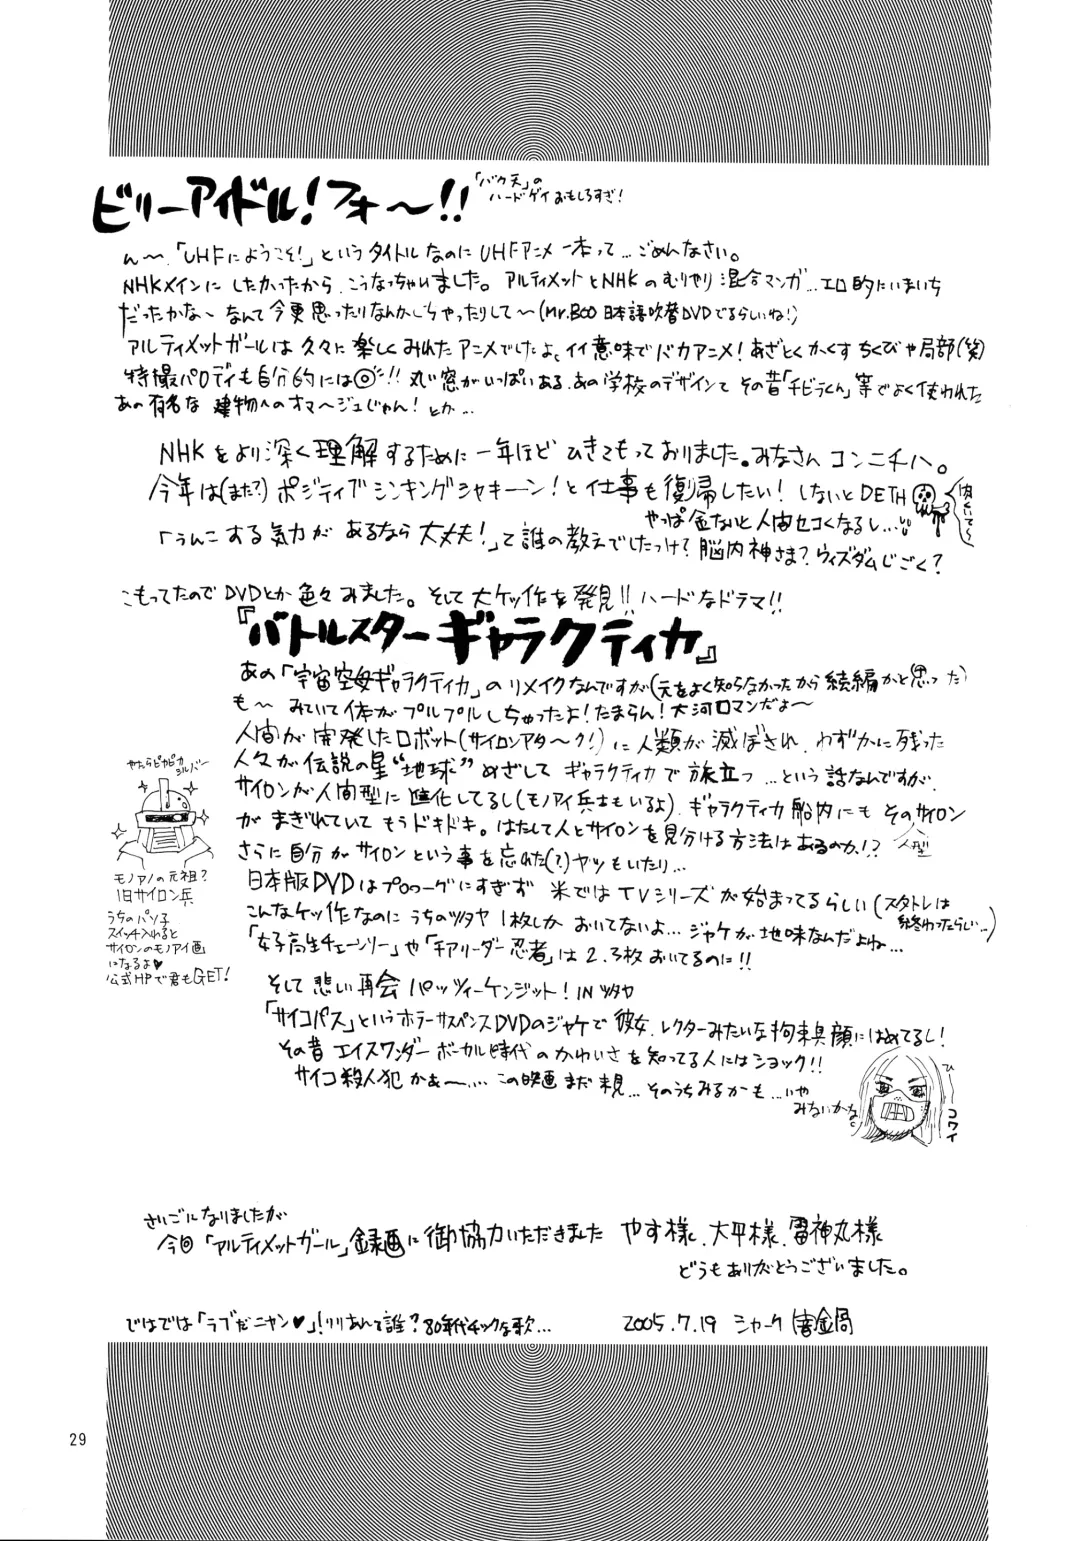 ビリーアイドル!フォ〜!!
「バク天」の
ハードゲイおもしろすぎ!
ん〜、「UHFにようこそ!」というタイトルなのにUHFアニメ一本って…ごめんなさい。
NHKメインにしたかったから、こうなっちゃいました。アルティメットとNHKのむりやり混合マンガ…エロ的にいまいち
だったかな〜なんて今更思ったりなんかしちゃったりして〜(Mr.BOO日本語吹替DVDでるらしいね!)
アルティメットガールは久々に楽しくみれたアニメでしたよ、イイ意味でバカアニメ!あざとくかくすちくびや局部(笑)
特撮パロディも自分的には◎!!丸い窓がいっぱいある、あの学校のデザインってその昔「チビラくん」等でよく使われた
あの有名な建物へのオマージュじゃん!とか…
NHKをより深く理解するために一年ほどひきこもっておりました。みなさんコンニチハ。
今年は(また?)ポジティブシンキングシャキーン!と仕事も復帰したい!しないとDETH
肉くいて〜
やっぱ金ないと人間セコくなるし…
「うんこする気力があるなら大丈夫!」って誰の教えでしたっけ?脳内神さま?ウィズダムじごく?
こもってたのでDVDとか色々みました。そして大ケッ作を発見!!ハードなドラマ!!
『バトルスターギャラクティカ』
あの「宇宙空母ギャラクティカ」のリメイクなんですが(元をよく知らなかったから続編かと思った)
も〜みていて体がプルプルしちゃったよ!たまらん!大河ロマンだよ〜
人間が開発したロボット(サイロンアタ〜ク!)に人類が滅ぼされ、わずかに残った
人々が伝説の星"地球"めざしてギャラクティカで旅立つ…という話なんですが、
サイロンが人間型に進化してるし(モノアイ兵士もいるよ)、ギャラクティカ船内にもそのサイロン
人型
がまぎれていてもうドキドキ。はたして人とサイロンを見分ける方法はあるのか!?
さらに自分がサイロンという事を忘れた(?)ヤツもいたり…
日本版DVDはプロローグにすぎず米ではTVシリーズが始まってるらしい(スタトレは
終わったらしい…)
こんなケッ作なのにうちのツタヤ1枚しかおいてないよ…ジャケが地味なんだよね…
「女子高生チェーンソー」や「チアリーダー忍者」は2、3枚おいてるのに!!
やたらピカピカ
シルバー
モノアイの元祖?
旧サイロン兵
うちのパソ子
スイッチ入れると
サイロンのモノアイ画
になるよ♥
公式HPで君もGET!
そして悲しい再会パッツィーケンジット!INツタヤ
「サイコパス」というホラーサスペンスDVDのジャケで彼女、レクターみたいな拘束具顔にはめてるし!
その昔エイスワンダーボーカル時代のかわいさを知ってる人にはショック!!
サイコ殺人犯かぁ〜…この映画まだ未見…そのうちみるかも…いや
みないかな。
ひーーコワイ
さいごになりましたが
今回「アルティメットガール」録画に御協力いただきました やす様、大平様、雷神丸様
どうもありがとうございました。
ではでは「ラブだニャン♥」!りりあんて誰?80年代チックな歌…
2005.7.19 シャーク
29